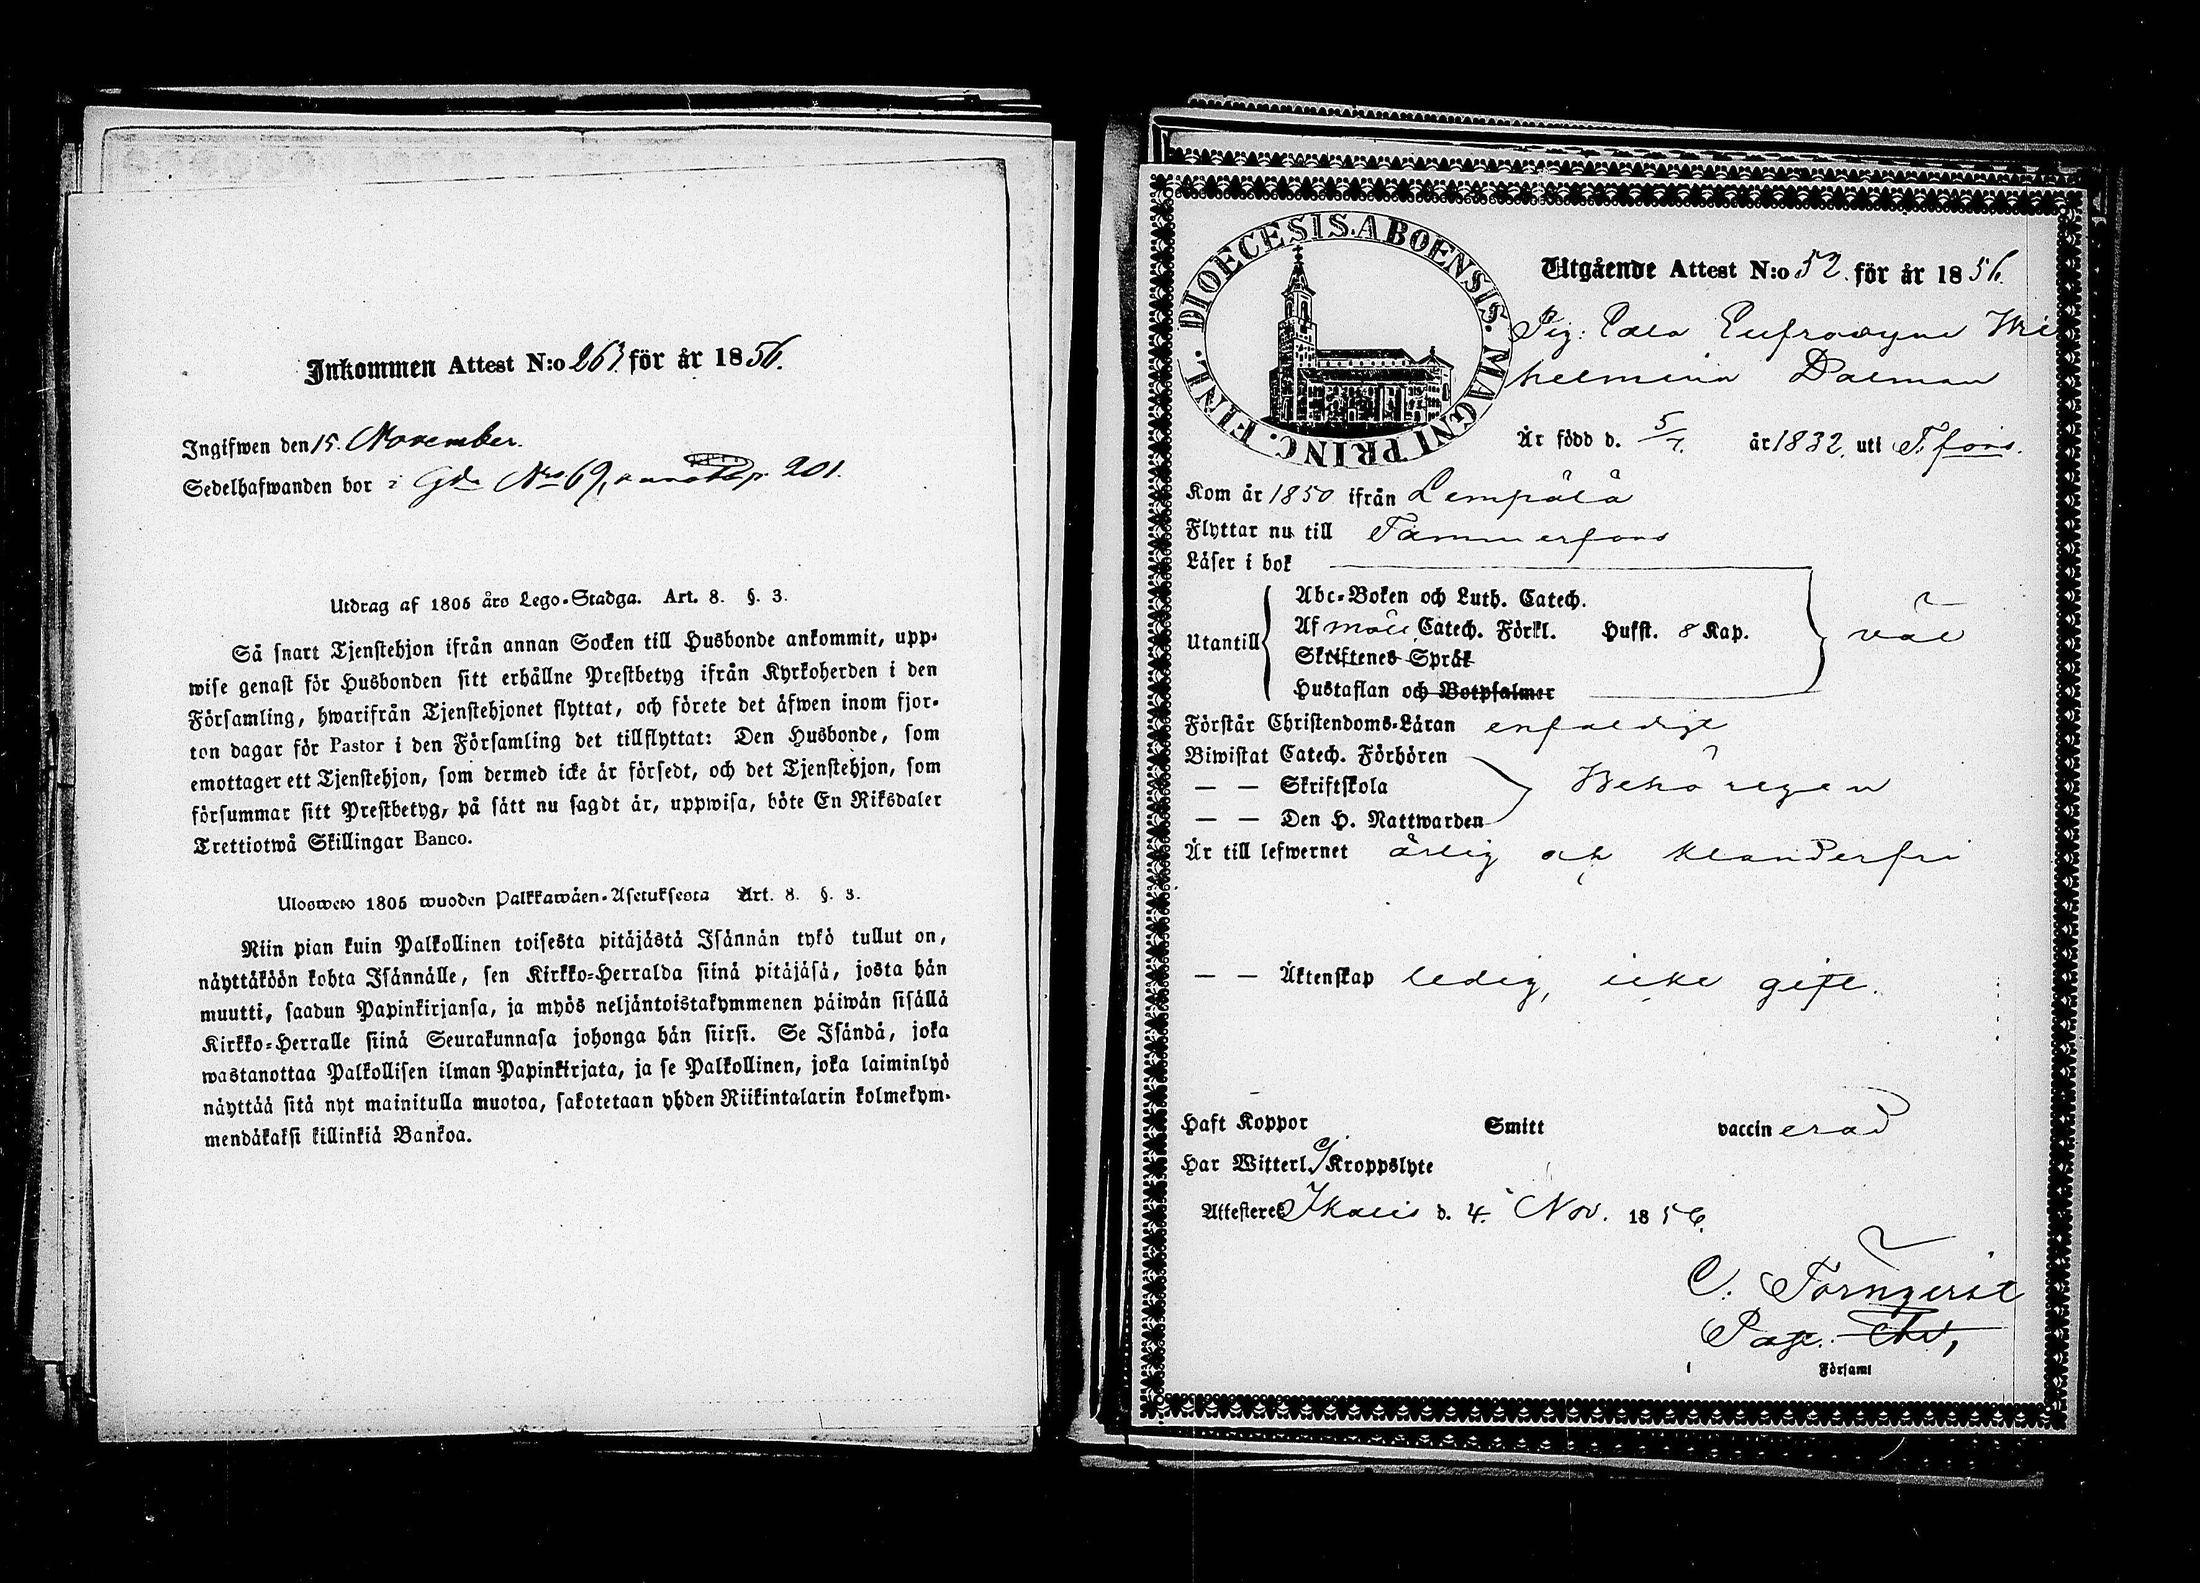 Inkommen Attest N:o 263. för år 1856.
Ingifwen den 15. November.
Sedelhafwanden bor i Gd. Nro 69, p. 201.
Utdrag af 1805 års Lego-Stadga. Art. 8. §. 3.
Så snart Tjenstehjon ifrån annan Socken till Husbonde ankommit, upp-
wise genast för Husbonden sitt erhållne Prestbetyg ifrån Kyrkoherden i den
Församling, hwarifrån Tjenstehjonet flyttat, och förete det äfwen inom fjor-
ton dagar för Pastor i den Församling det tillflyttat: Den Husbonde, som
emottager ett Tjenstehjon, som dermed icke är försedt, och det Tjenstehjon, som
försummar sitt Prestbetyg, på sätt nu sagdt är, uppwisa, böte En Riksdaler
Trettiotwå Skillingar Banco.
Ulosweto 1805 wuoden Palkkawäen-Asetuksesta Art. 8. §. 3.
Niin pian kuin Palkollinen toisesta pitäjästä Isännän tykö tullut on,
näyttäköön kohta Isännälle, sen Kirkko-Herralda siinä pitäjäsä, josta hän
muutti, saadun Papinkirjansa, ja myös neljäntoistakymmenen päiwän sisällä
Kirkko-Herralle siinä Seurakunnasa johonga hän siirsi. Se Isändä, joka
wastanottaa Palkollisen ilman Papinkirjata, ja se Palkollinen, joka laiminlyö
näyttää sitä nyt mainitulla muotoa, sakotetaan yhden Riikintalarin kolmekym-
mendäkaksi killinkiä Bankoa.
DIOECESIS. ABOENSIS. MAGNI PRINC. FINL.
Utgående Attest N:o 52. för år 1856.
Pig. Eufrosyne Wil
helmina Dalman
Är född d. 5/7. år 1832. uti T.fors.
Kom år 1850 ifrån Lempälä
Flyttar nu till Tammerfors
Läser i bok
Abc-Boken och Luth. Catech.
Utantill Af Catech. Förkl. Husst. 8 Kap. väl
Skriftenes Språk
Hustaflan och Botpsalmer
Förstår Christendoms-Läran enfaldigt
Biwistat Catech. Förhören
— — Skriftskola Behörigen
— — Den H. Nattwarden
Är till lefwernet ärlig och klanderfri
— — Äktenskap ledig, icke gift.
Haft Koppor Smitt vaccinerad
Har Witterl. ej Kroppslyte
Attesteres Ikalis d. 4. Nov. 1856.
C. Törnqvist
Past.
Församl